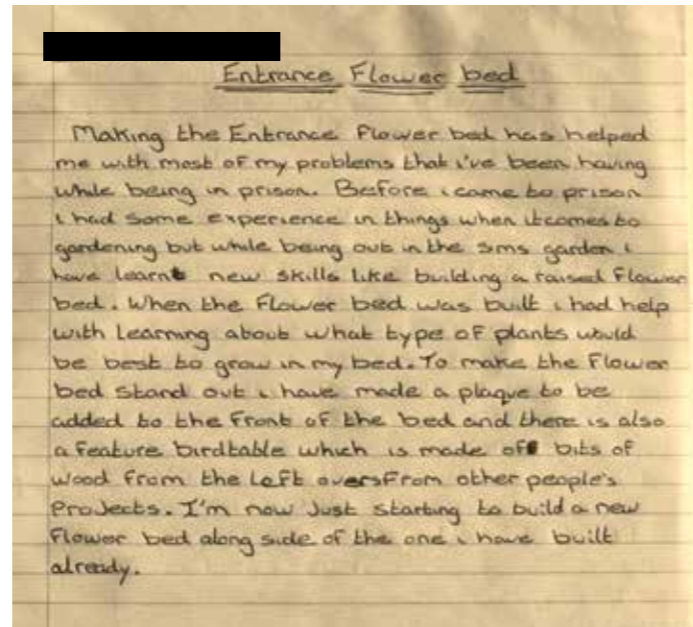 Entrance Flower bed
Making the Entrance Flower bed has helped
me with most of my problems that i've been having
while being in prison. Before i came to prison
i had some experience in things when it comes to
gardening but while being out in the sms garden i
have learnt new skills like building a raised flower
bed. When the flower bed was built i had help
with learning about what type of plants would
be best to grow in my bed. To make the flower
bed stand out i have made a plaque to be
added to the front of the bed and there is also
a feature birdtable which is made of bits of
wood from the left overs from other people's
projects. I'm now just starting to build a new
flower bed along side of the one i have built
already.